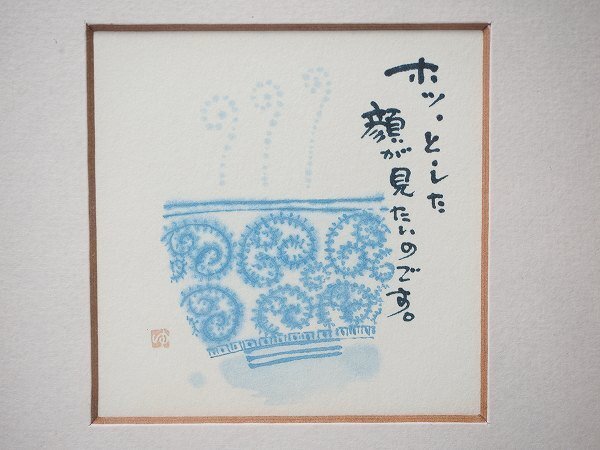 ホッ・と・した
顔が見たいのです。